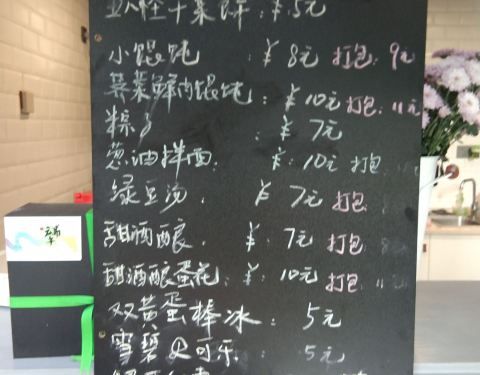 干菜饼:¥5元
小馄饨 ¥8元 打包:9元
荠菜鲜肉馄饨:¥10元 打包:11元
粽子:¥7元
葱油拌面:¥:10元 打包
绿豆汤. ¥7元 打包
甜酒酿. ¥:7元 打包
甜酒酿蛋花:¥:10元 打包
双黄蛋棒冰:5元
雪碧 可乐 5元